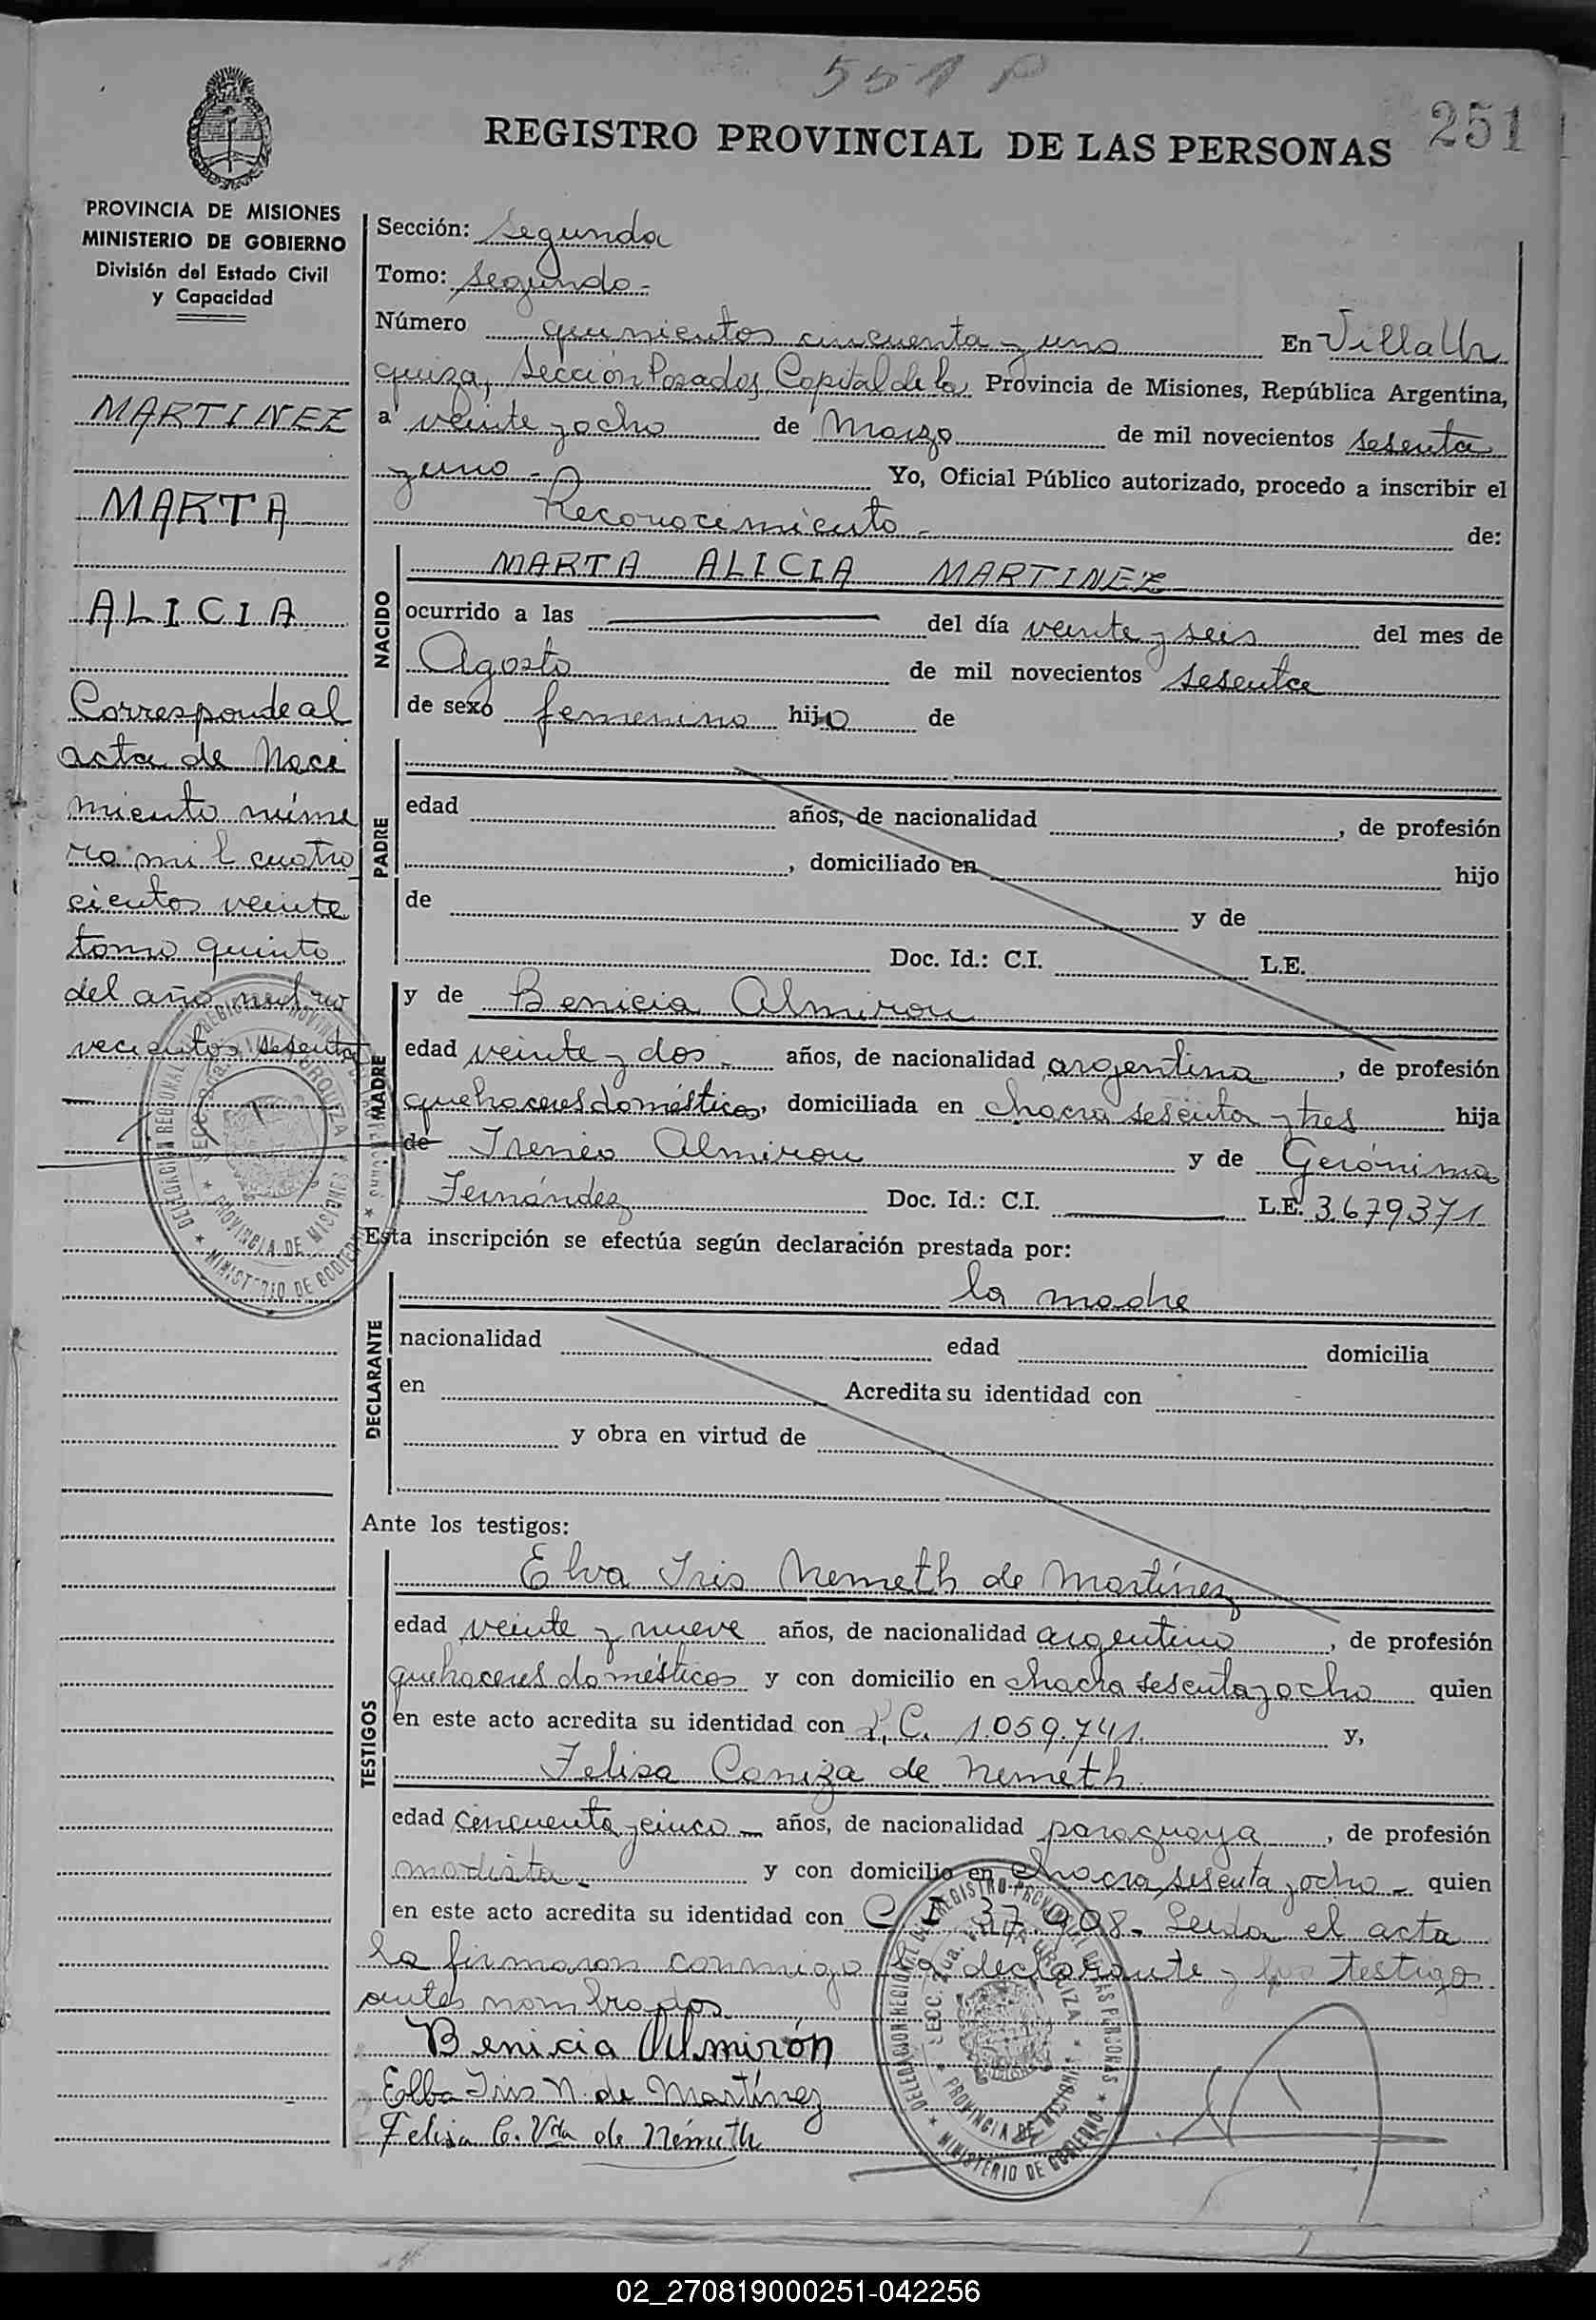 551 P
251
REGISTRO PROVINCIAL DE LAS PERSONAS
PROVINCIA DE MISIONES
MINISTERIO DE GOBIERNO
División del Estado Civil
y Capacidad
MARTINEZ
MARTA
ALICIA
Corresponde al
acta de Naci
miento núme
ro mil cuatro
cientos veinte
tomo quinto
del año mil no
vecientos sesenta
Sección: Segunda
Tomo: Segundo -
Número quinientos cincuenta y uno En Villa Ur
quiza, Sección Posadas, Capital de la Provincia de Misiones, República Argentina,
a veinte y ocho de Marzo de mil novecientos sesenta
y uno - Yo, Oficial Público autorizado, procedo a inscribir el
Reconocimiento - de:
NACIDO
MARTA ALICIA MARTINEZ
ocurrido a las del día veinte y seis del mes de
Agosto de mil novecientos sesenta
de sexo femenino hijo de
PADRE
edad años, de nacionalidad , de profesión
, domiciliado en hijo
de y de
Doc. Id.: C.I. L.E.
MADRE
y de Benicia Almiron
edad veinte y dos - años, de nacionalidad argentina , de profesión
quehaceres domésticos, domiciliada en chacra sesenta y tres hija
de Ireneo Almiron y de Gerónima
Fernández Doc. Id.: C.I. L.E. 3.679.371
Esta inscripción se efectúa según declaración prestada por:
DECLARANTE
la madre
nacionalidad edad domicilia
en Acredita su identidad con
y obra en virtud de
Ante los testigos:
TESTIGOS
Elva Iris Nemeth de Martínez
edad veinte y nueve años, de nacionalidad argentina , de profesión
quehaceres domésticos y con domicilio en chacra sesenta y ocho quien
en este acto acredita su identidad con L.C. 1.059.741 y,
Felisa Caniza de Nemeth
edad cincuenta y cinco - años, de nacionalidad paraguaya , de profesión
modista - y con domicilio en chacra sesenta y ocho - quien
en este acto acredita su identidad con C.I. 37.908 - Leida el acta
la firmaron conmigo la declarante y los testigos
antes nombrados
Benicia Almirón
Elba Iris N. de Martínez
Felisa C. Vda de Németh
DELEGACION REGIONAL DEL REGISTRO PROVINCIAL DE LAS PERSONAS
SECC. 2da. VILLA URQUIZA
PROVINCIA DE MISIONES
MINISTERIO DE GOBIERNO
02_270819000251-042256